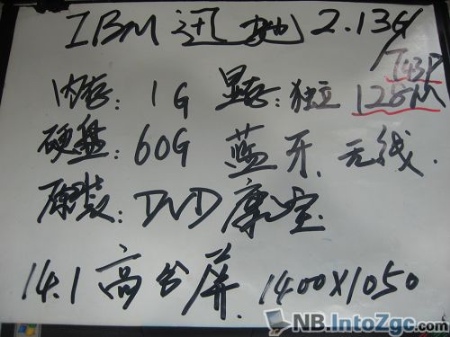 IBM 迅驰 2.13G/
T43P
内存: 1G 显存: 独立 128M
硬盘: 60G 蓝牙. 无线.
原装: DVD 康宝
14.1 高分屏. 1400X1050
NB.IntoZgc.com